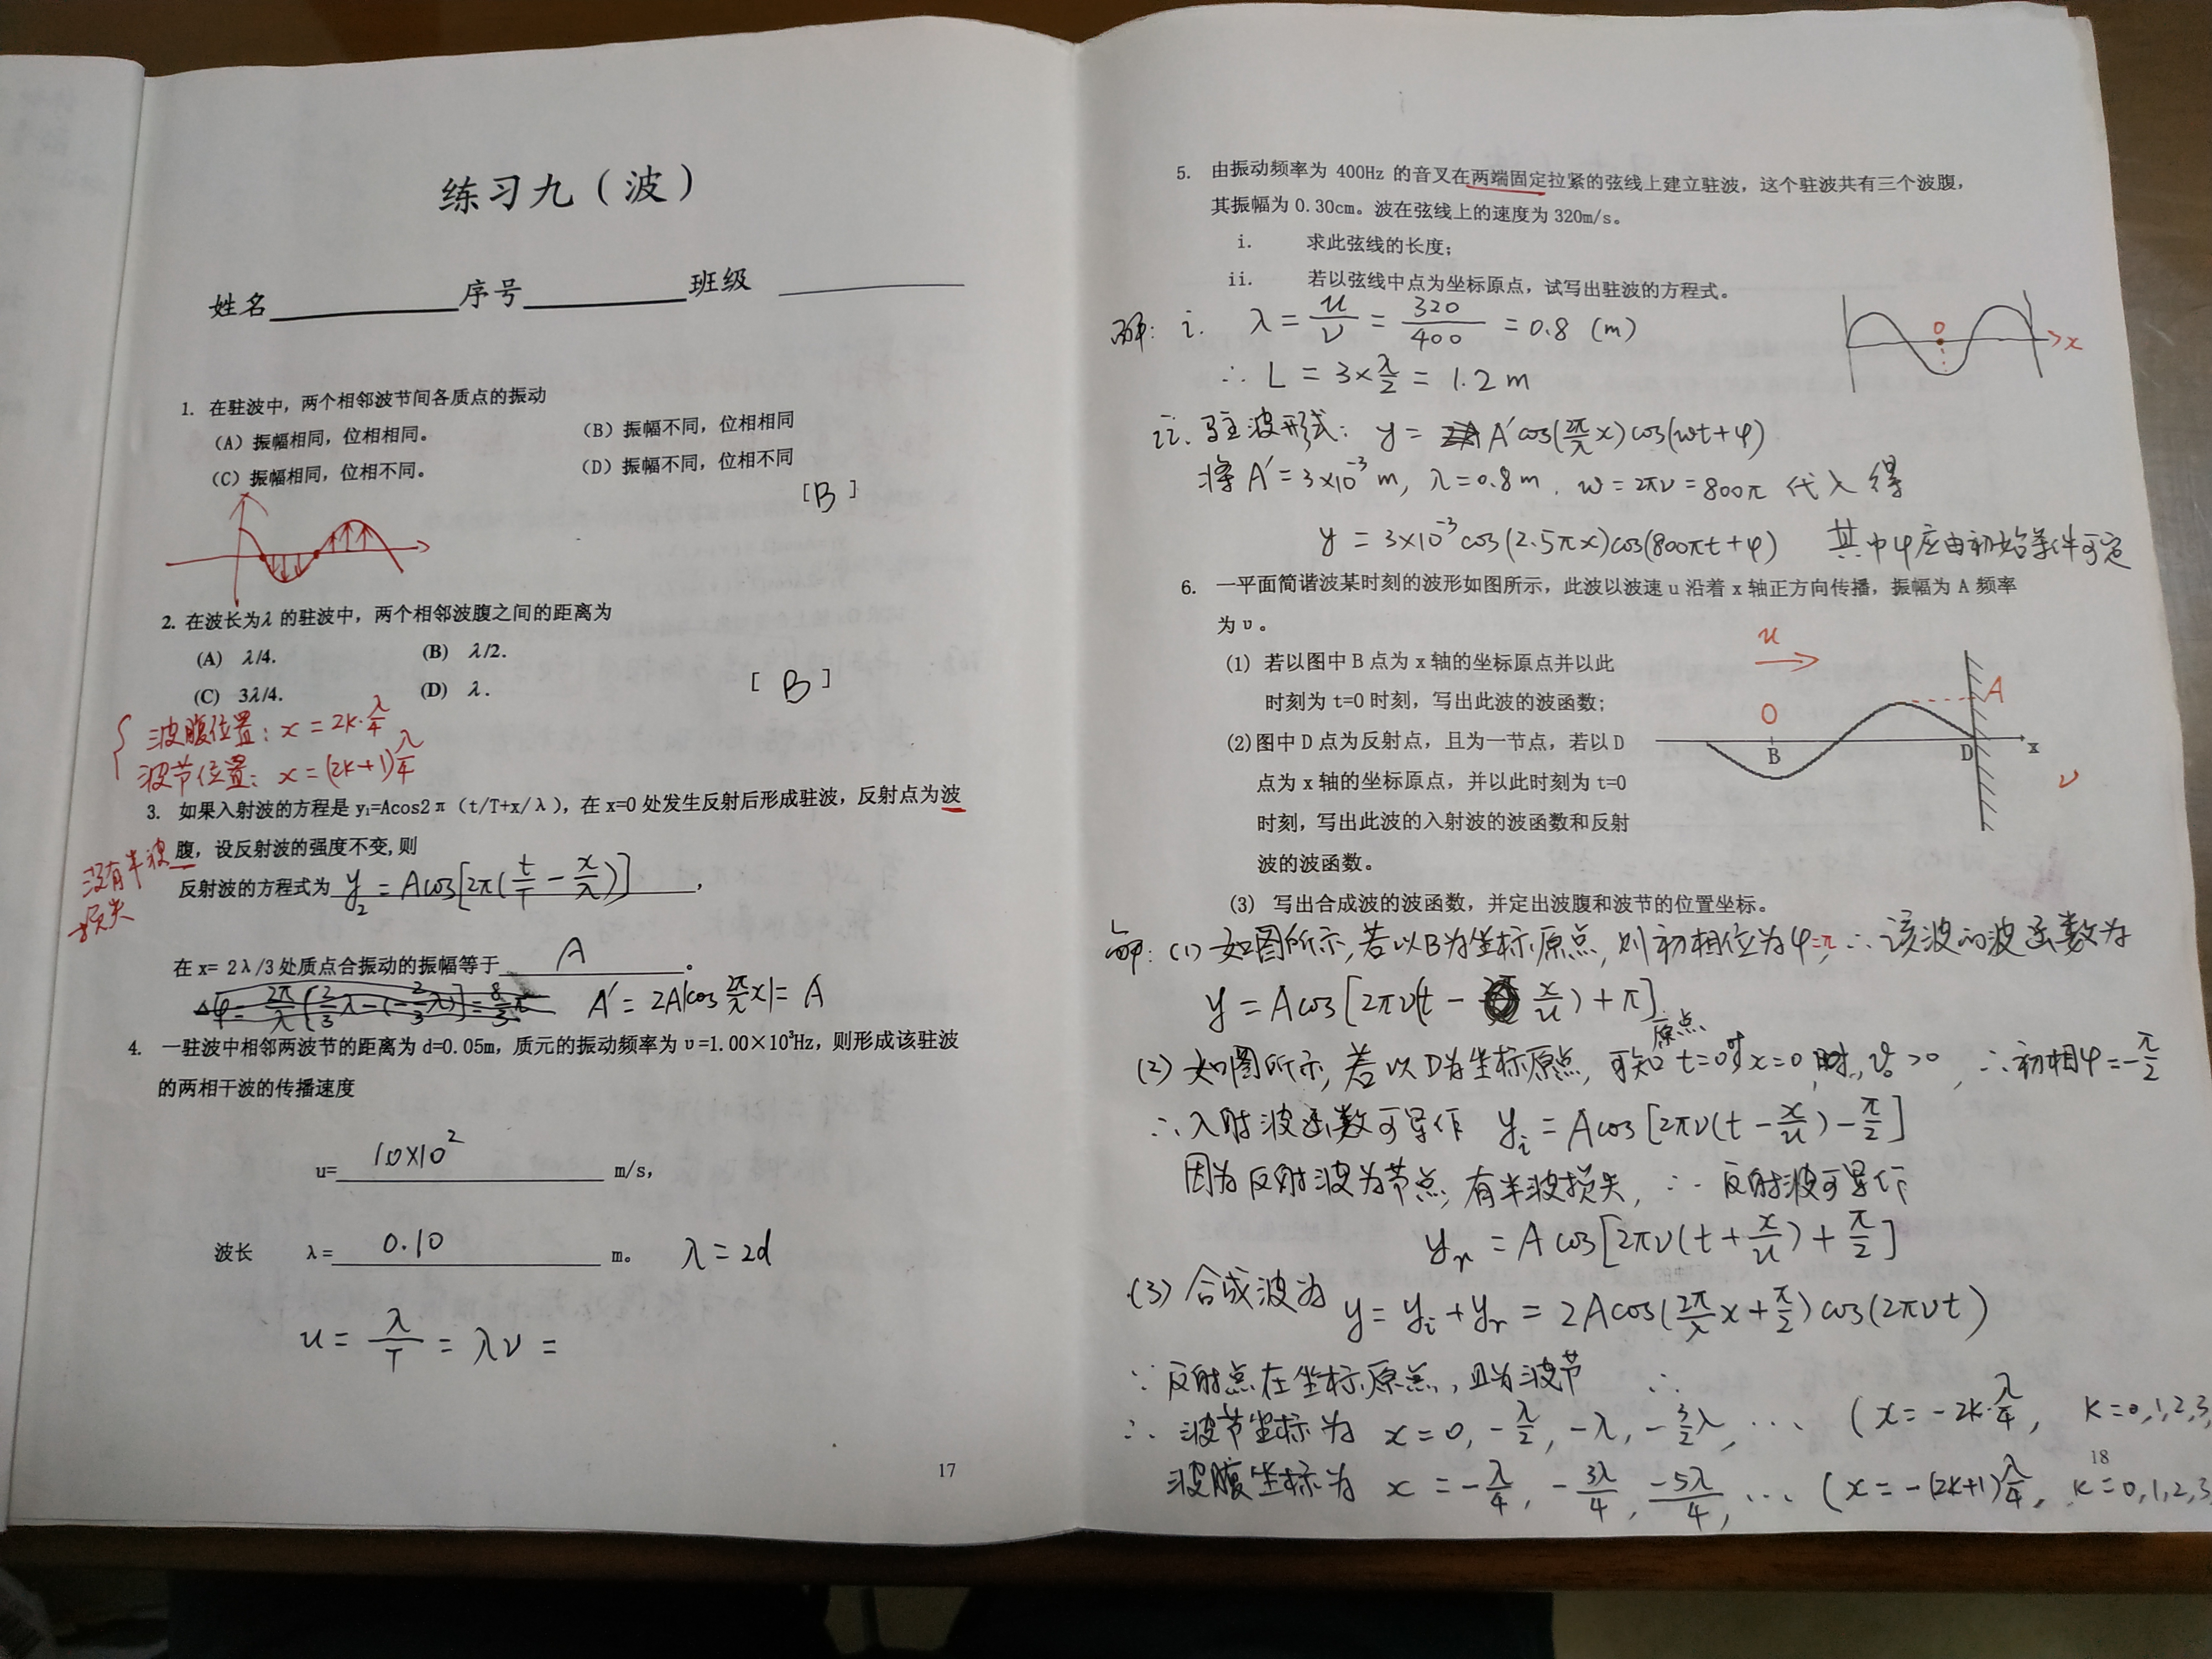 练习九（波）
姓名 序号 班级
1. 在驻波中，两个相邻波节间各质点的振动
（A）振幅相同，位相相同。 （B）振幅不同，位相相同
（C）振幅相同，位相不同。 （D）振幅不同，位相不同
[B]
2. 在波长为λ 的驻波中，两个相邻波腹之间的距离为
(A) λ/4. (B) λ/2.
(C) 3λ/4. (D) λ.
[B]
波腹位置：x = 2k·λ/4
波节位置：x = (2k+1)λ/4
3. 如果入射波的方程是 y₁=Acos2π（t/T+x/λ），在 x=0 处发生反射后形成驻波，反射点为波
腹，设反射波的强度不变,则
没有半波
损失
反射波的方程式为 y₂ = Acos[2π(t/T - x/λ)]，
在 x= 2λ/3 处质点合振动的振幅等于 A 。
A′ = 2A|cos 2π/λ x| = A
4. 一驻波中相邻两波节的距离为 d=0.05m，质元的振动频率为 υ=1.00×10³Hz，则形成该驻波
的两相干波的传播速度
u= 1.0×10² m/s，
波长 λ= 0.10 m。 λ = 2d
u = λ/T = λν =
17
5. 由振动频率为 400Hz 的音叉在两端固定拉紧的弦线上建立驻波，这个驻波共有三个波腹，
其振幅为 0.30cm。波在弦线上的速度为 320m/s。
i. 求此弦线的长度；
ii. 若以弦线中点为坐标原点，试写出驻波的方程式。
解：i. λ = u/ν = 320/400 = 0.8 (m)
∴ L = 3×λ/2 = 1.2 m
O x
ii. 驻波形式：y = A′cos(2π/λ x)cos(ωt+φ)
将 A′ = 3×10⁻³ m, λ=0.8m, ω=2πν=800π 代入得
y = 3×10⁻³cos(2.5πx)cos(800πt+φ) 其中φ应由初始条件可定
6. 一平面简谐波某时刻的波形如图所示，此波以波速 u 沿着 x 轴正方向传播，振幅为 A 频率
为 υ。
(1) 若以图中 B 点为 x 轴的坐标原点并以此
时刻为 t=0 时刻，写出此波的波函数；
(2)图中 D 点为反射点，且为一节点，若以 D
点为 x 轴的坐标原点，并以此时刻为 t=0
时刻，写出此波的入射波的波函数和反射
波的波函数。
(3) 写出合成波的波函数，并定出波腹和波节的位置坐标。
u
A
O
B
D
x
ν
解：(1) 如图所示，若以B为坐标原点，则初相位为φ=π ∴ 该波的波函数为
y = Acos[2πν(t - x/u) + π]
(2) 如图所示，若以D为坐标原点，可知 t=0时 原点 x=0, v₀>0, ∴初相φ=-π/2
∴入射波函数可写作 yᵢ = Acos[2πν(t - x/u) - π/2]
因为反射波为节点，有半波损失，∴ 反射波可写作
yᵣ = Acos[2πν(t + x/u) + π/2]
(3) 合成波为 y = yᵢ + yᵣ = 2Acos(2π/λ x + π/2)cos(2πνt)
∵反射点在坐标原点，且为波节 ∴
∴ 波节坐标为 x = 0, -λ/2, -λ, -3/2λ, … (x = -2k·λ/4, k=0,1,2,3,
18
波腹坐标为 x = -λ/4, -3λ/4, -5λ/4, … (x = -(2k+1)λ/4, k=0,1,2,3